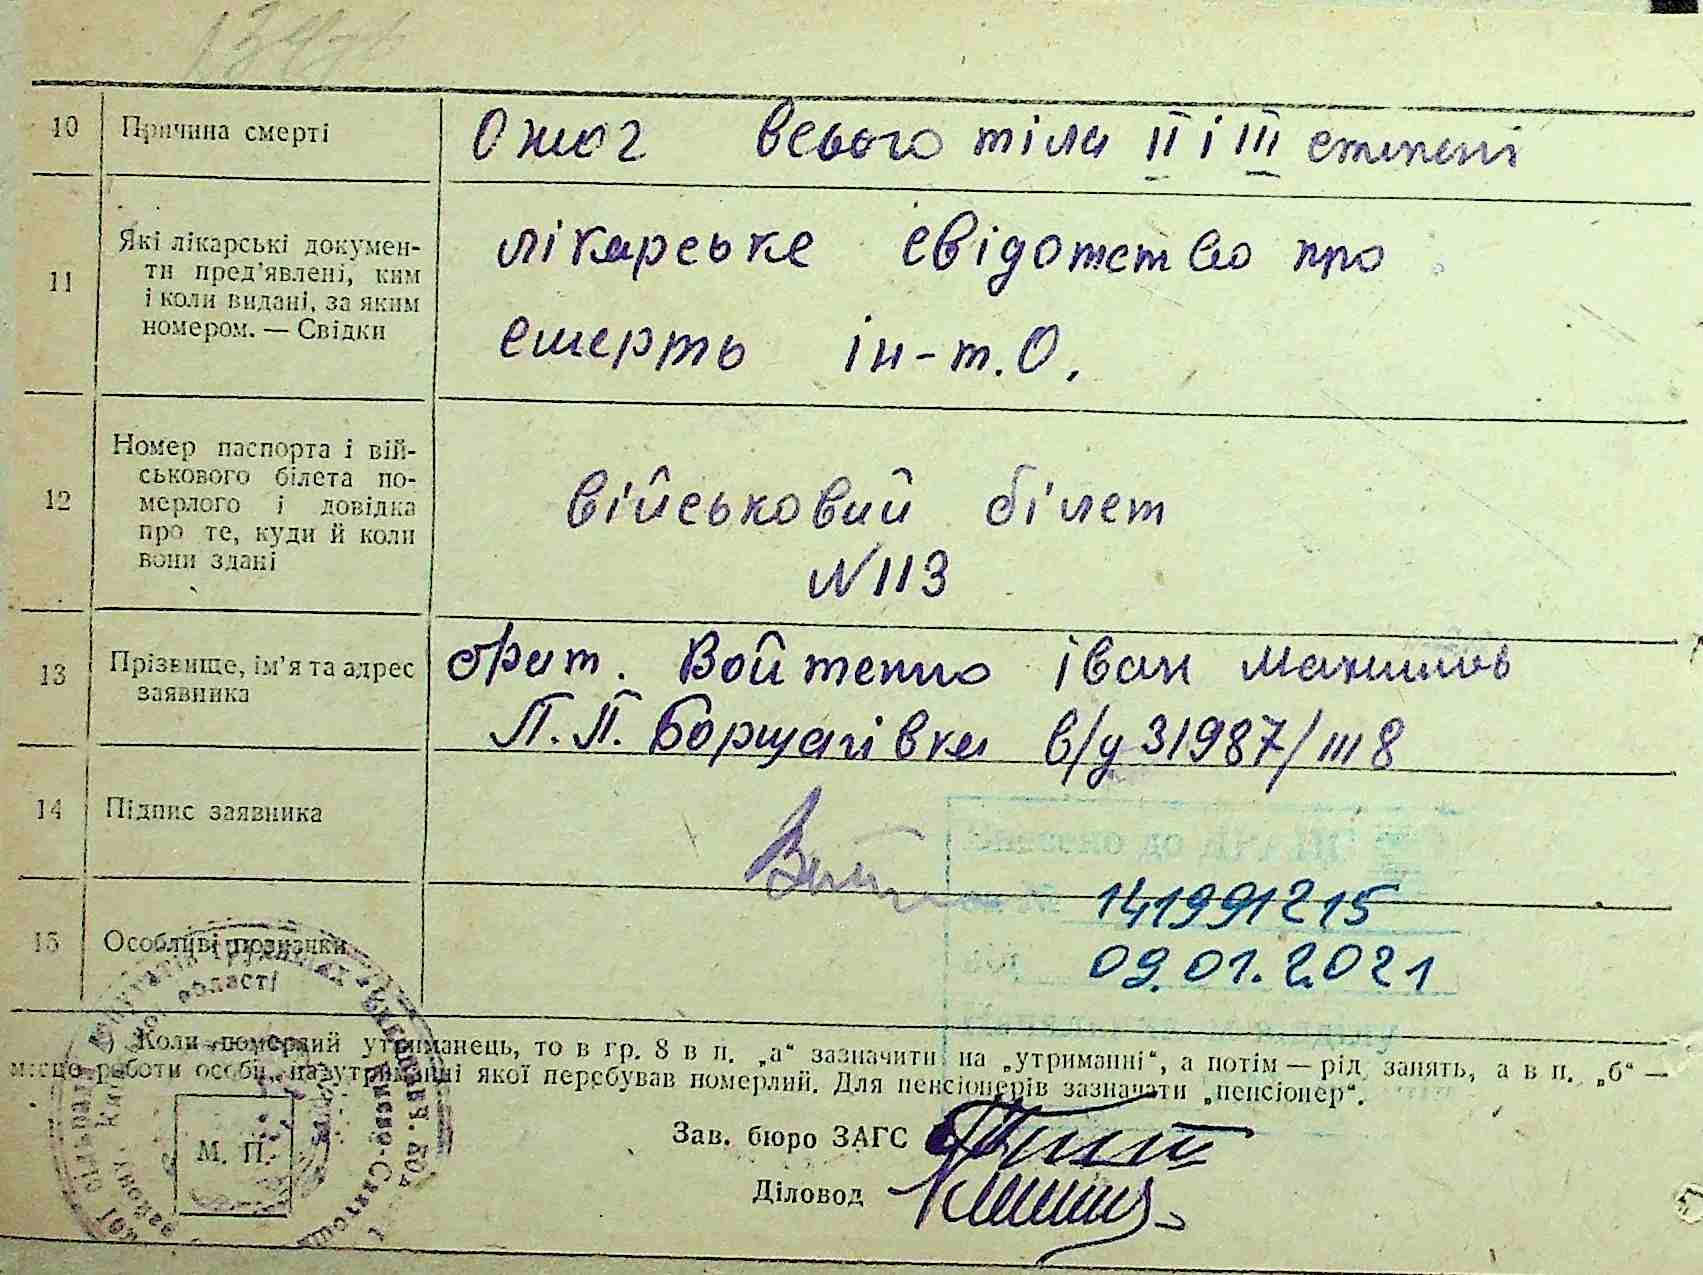 10 Причина смерті Ожог всього тіла II і III степені
11 Які лікарські докумен-
ти пред'явлені, ким
і коли видані, за яким
номером. — Свідки
лікарське свідотство про
смерть ін-т.О.
12 Номер паспорта і вій-
ськового білета по-
мерлого і довідка
про те, куди й коли
вони здані
військовий білет
№113
13 Прізвище, ім'я та адрес
заявника
брат. Войтенко Іван
П.П. Борщагівка в/ч 31987/ш8
14 Підпис заявника
141991215
15 Особливі познаки
09.01.2021
) Коли померлий утриманець, то в гр. 8 в п. „а“ зазначити на „утриманні“, а потім — рід занять, а в п. „б“ —
місце роботи особи, на утриманні якої перебував померлий. Для пенсіонерів зазначати „пенсіонер“.
Зав. бюро ЗАГС
Діловод
М. П.
області